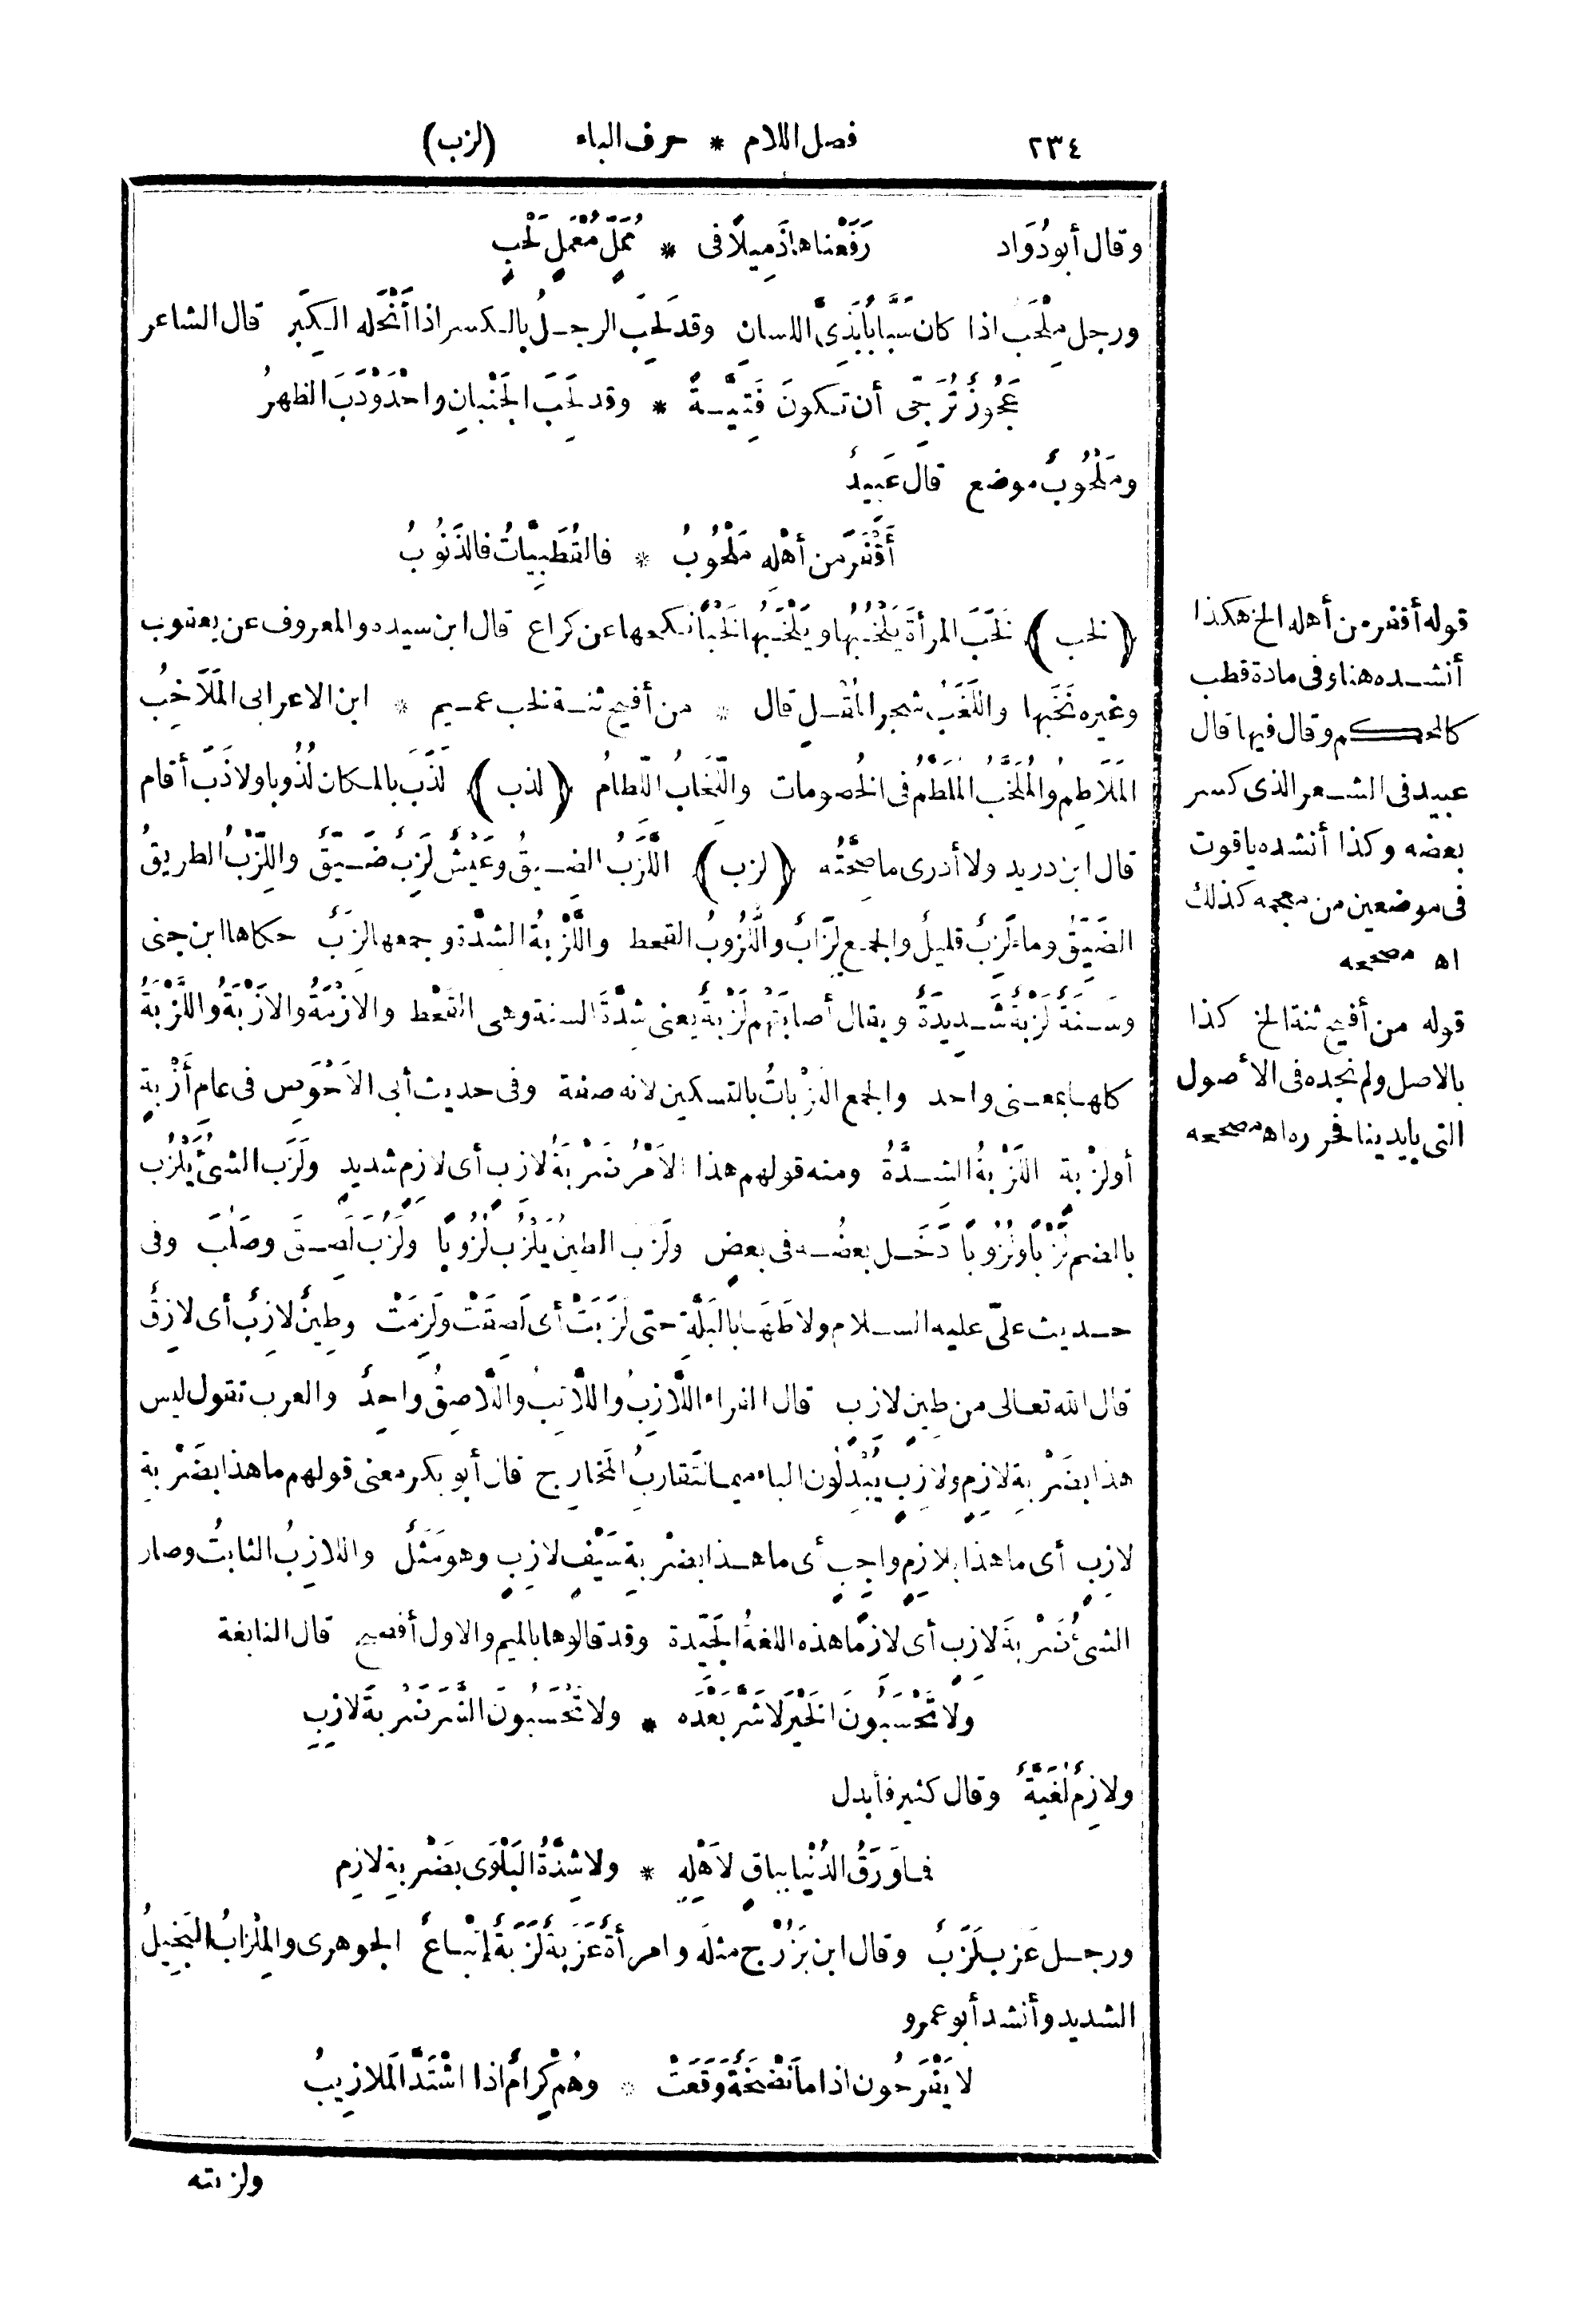 ٢٣٤ فصل اللام * حرف الباء (لزب)
وقال أبو دُوَاد رَفَعْناها ذَمِيلًا فى * مُمَلٍّ مُعْمَلٍ لَحْبِ
ورجل مِلْحَب اذا كان سَبَّاباً بَذِىَّ اللسانِ وقد لَحِبَ الرجــلُ بالكسر اذا أَنْحَله الكِبَر قال الشاعر
عَجُوزٌ تُرَجِّى أن تكونَ فَتِيَّــةً * وقد لَحِبَ الجَنْبانِ واحْدَوْدَبَ الظهرُ
ومَلْحُوبٌ موضع قال عَبِيدٌ
أَقْفَرَ من أهْلِه مَلْحُوبُ * فالقُطَبِيَّاتُ فالذَّنُوبُ
﴿لخب﴾ لَخَبَ المرأةَ يَلْخُبُها ويَلْخَبُها لَخْباً نكحها عن كراع قال ابن سيده والمعروف عن يعقوب
وغيره نَخَبَها واللَّخَبُ شجر المُقْــلِ قال * من أفيح ثنــة لخب عمــيم * ابن الاعرابى المَلَاخِبُ
المَلَاطِمُ والمُلَخَّب المُلَطَّمُ فى الخُصومات واللِّخابُ اللِّطامُ ﴿لذب﴾ لَذَبَ بالمكان لُذُوبا ولاذَبَ أقام
قال ابن دريد ولا أدرى ما صِحَّتُه ﴿لزب﴾ اللَّزَبُ الضِّــيقُ وعَيْشٌ لَزِبٌ ضَــيِّقٌ واللِّزْبُ الطريقُ
الضَيِّقُ وماءٌ لَزِبٌ قليلٌ والجمع لِزَابٌ واللُّزُوبُ القحط واللَّزْبةُ الشدّة وجمعها لِزَبٌ حكاها ابن جنى
وسَــنةٌ لَزْبةٌ شَــدِيدَةٌ ويقال أصابَتْهم لَزْبةٌ يعنى شِدَّةَ السنة وهى القَحْط والازْمَةُ والازْبَةُ واللَّزْبَةُ
كلها بمعــنى واحد والجمع اللَّزْباتُ بالتسكين لانه صفة وفى حديث أبى الاَحْوَصِ فى عامِ أَزْبةٍ
أو لَزْبة اللَّزْبةُ الشِــدَّةُ ومنه قولهم هذا الاَمْرُ ضَرْبةُ لازبٍ أى لازمٍ شديدٍ ولَزَبَ الشئُ يَلْزُب
بالضم لَزْباً ولُزُوباً دَخَــل بعضُــه فى بعضٍ ولَزَب الطينُ يَلْزُب لُزُوباً ولَزُبَ لَصِــقَ وصَلُبَ وفى
حــديث علىّ عليه الســلام ولاطَهــا بالبَلَّةِ حتى لَزَبَتْ أى لَصِقَتْ ولَزِمَتْ وطِينٌ لازِبٌ أى لازِقٌ
قال الله تعالى من طِينٍ لازِبٍ قال الفراء اللَّازِبُ واللَّاتِبُ واللَّاصِقُ واحِدٌ والعرب تقول ليس
هذا بضَرْبةِ لازِمٍ ولازِبٍ يُبْدِلُون الباء ميما لتَقارُبِ المَخارِج قال أبو بكر معنى قولهم ما هذا بضَرْبةِ
لازِبٍ أى ما هذا بلازِمٍ واجِبٍ أى ما هــذا بضَرْبةِ سَيْفٍ لازِبٍ وهو مَثَلٌ واللازِبُ الثابتُ وصار
الشئُ ضَرْبةَ لازب أى لازماً هذه اللغةُ الجَيِّدة وقد قالوها بالميم والاول أفصح قال النابغة
ولا تَحْسَبُونَ الخَيْرَ لا شَرَّ بَعْدَه * ولا تَحْسَبُونَ الشَّرَّ ضَرْبةَ لازِبِ
ولازِمٌ لُغَيَّةٌ وقال كثير فأبدل
فما وَرَقُ الدُنْيا بباقٍ لاَهْلِه * ولا شِدَّةُ البَلْوَى بضَرْبةِ لازِم
ورجــل عَزَبٌ لَزَبٌ وقال ابن بَزُرْج مثلَه وامرأةٌ عَزَبةٌ لَزَبَةٌ إتْباعٌ الجوهرى والمِلْزابُ البَخِيلُ
الشديد وأنشد أبو عمرو
لا يَفْرَحُون اذا ما نَضْخَةٌ وَقَعَتْ * وهُمْ كِرامٌ اذا اشْتَدَّ المَلازِيبُ
ولزبته
قوله أقفر من أهله الخ هكذا
أنشــده هنا وفى مادة قطب
كالمحكم وقال فيها قال
عبيد فى الشــعر الذى كسر
بعضه وكذا أنشده ياقوت
فى موضعين من معجمه كذلك
اه مصححه
قوله من أفيح ثنة الخ كذا
بالاصل ولم نجده فى الأصول
التى بايدينا فحرره اه مصححه